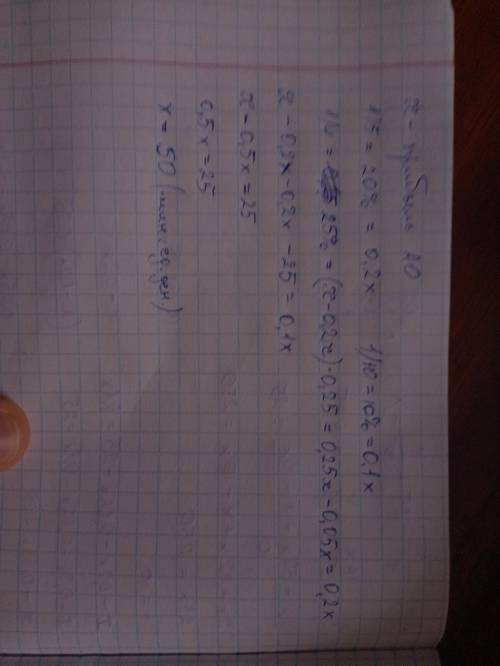 x - прибыль АО
1/5 = 20% = 0,2x 1/10 = 10% = 0,1x
1/4 = 25% = (x-0,2x)·0,25 = 0,25x - 0,05x = 0,2x
x - 0,2x - 0,2x - 25 = 0,1x
x - 0,5x = 25
0,5x = 25
x = 50 (млн. ед. ден.)